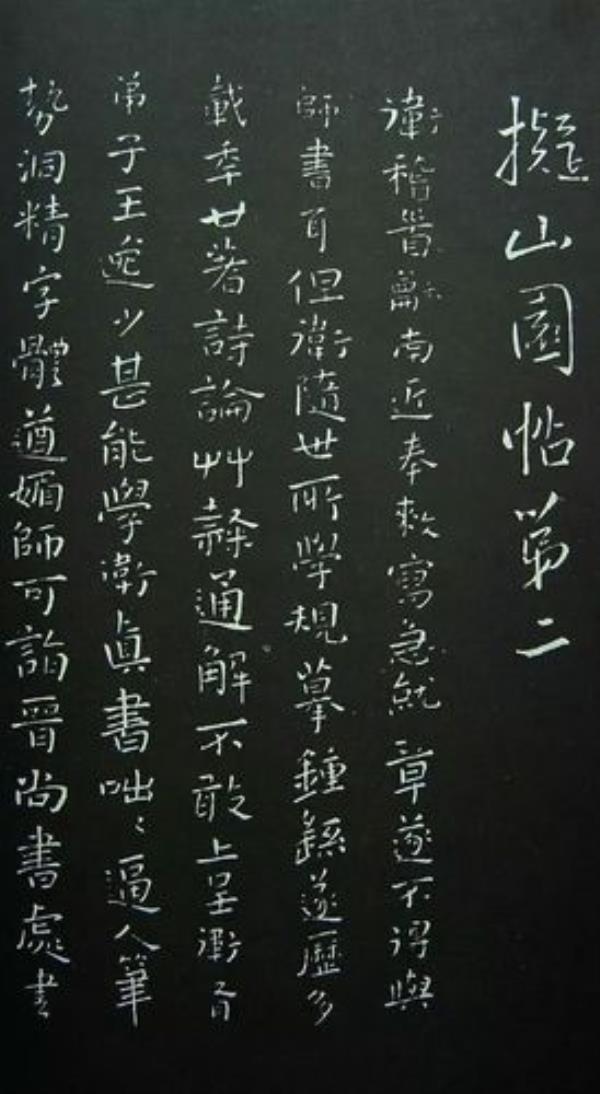 擬山園帖第二
衛稽首龢南近奉敕寫急就章遂不得與
師書耳但衛隨世所學規摹鍾繇遂歷多
載年廿著詩論艸隸通解不敢上呈衛有
弟子王逸少甚能學衛眞書咄〻逼人筆
勢洞精字體遒媚師可詣晉尚書處書